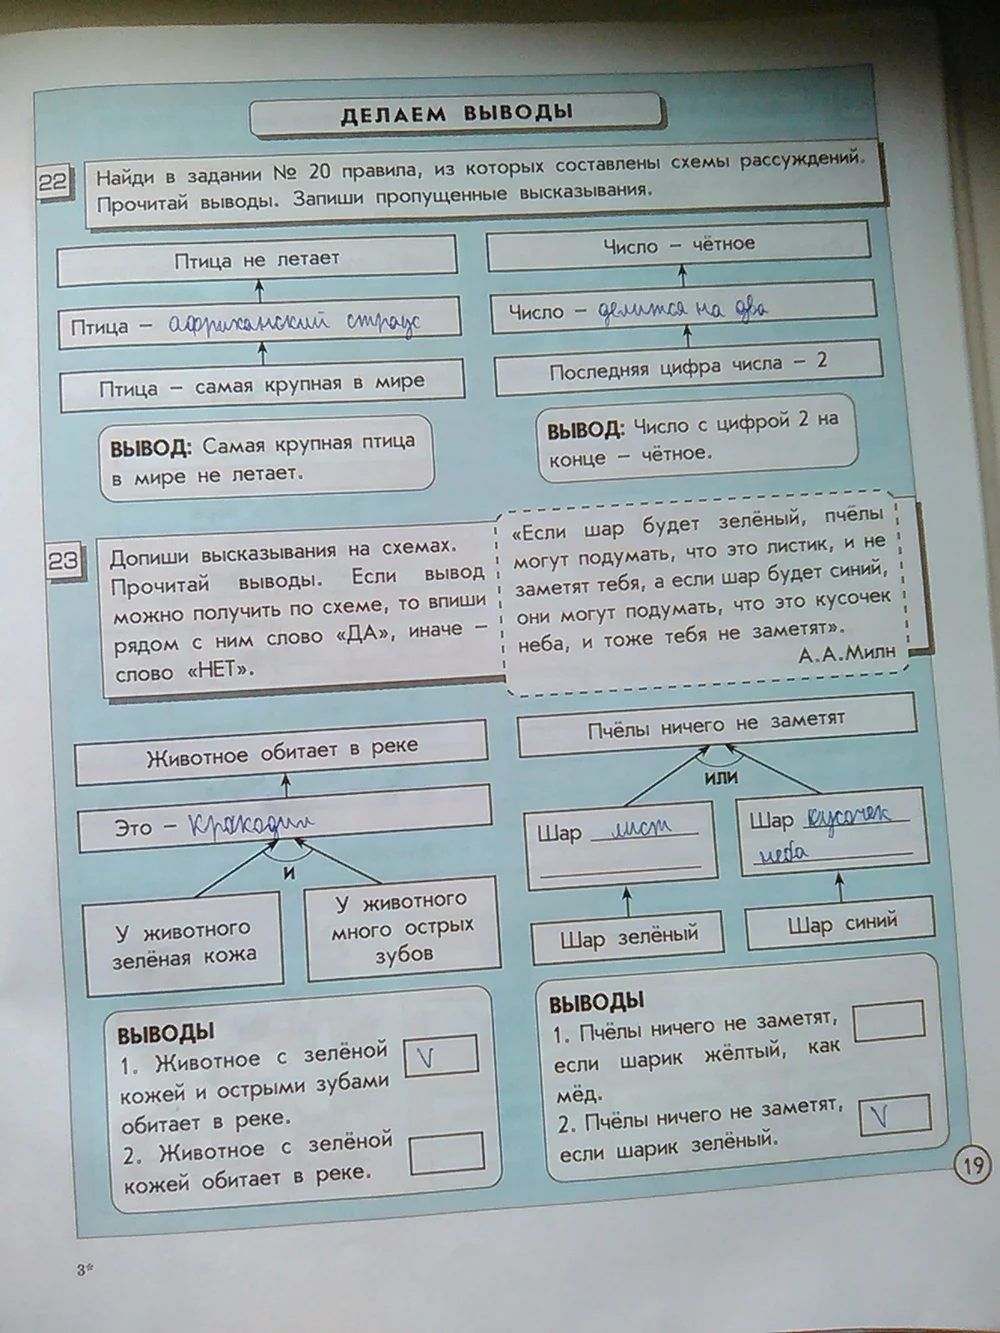 ДЕЛАЕМ ВЫВОДЫ
22
Найди в задании № 20 правила, из которых составлены схемы рассуждений.
Прочитай выводы. Запиши пропущенные высказывания.
Птица не летает
Птица – африканский страус
Птица – самая крупная в мире
ВЫВОД: Самая крупная птица
в мире не летает.
Число – чётное
Число – делится на два
Последняя цифра числа – 2
ВЫВОД: Число с цифрой 2 на
конце – чётное.
23
Допиши высказывания на схемах.
Прочитай выводы. Если вывод
можно получить по схеме, то впиши
рядом с ним слово «ДА», иначе –
слово «НЕТ».
«Если шар будет зелёный, пчёлы
могут подумать, что это листик, и не
заметят тебя, а если шар будет синий,
они могут подумать, что это кусочек
неба, и тоже тебя не заметят».
А.А.Милн
Животное обитает в реке
Это – крокодил
И
У животного
зелёная кожа
У животного
много острых
зубов
ВЫВОДЫ
1. Животное с зелёной
кожей и острыми зубами
обитает в реке.
V
2. Животное с зелёной
кожей обитает в реке.
Пчёлы ничего не заметят
ИЛИ
Шар лист
Шар кусочек
неба
Шар зелёный
Шар синий
ВЫВОДЫ
1. Пчёлы ничего не заметят,
если шарик жёлтый, как
мёд.
2. Пчёлы ничего не заметят,
если шарик зелёный.
V
19
3*